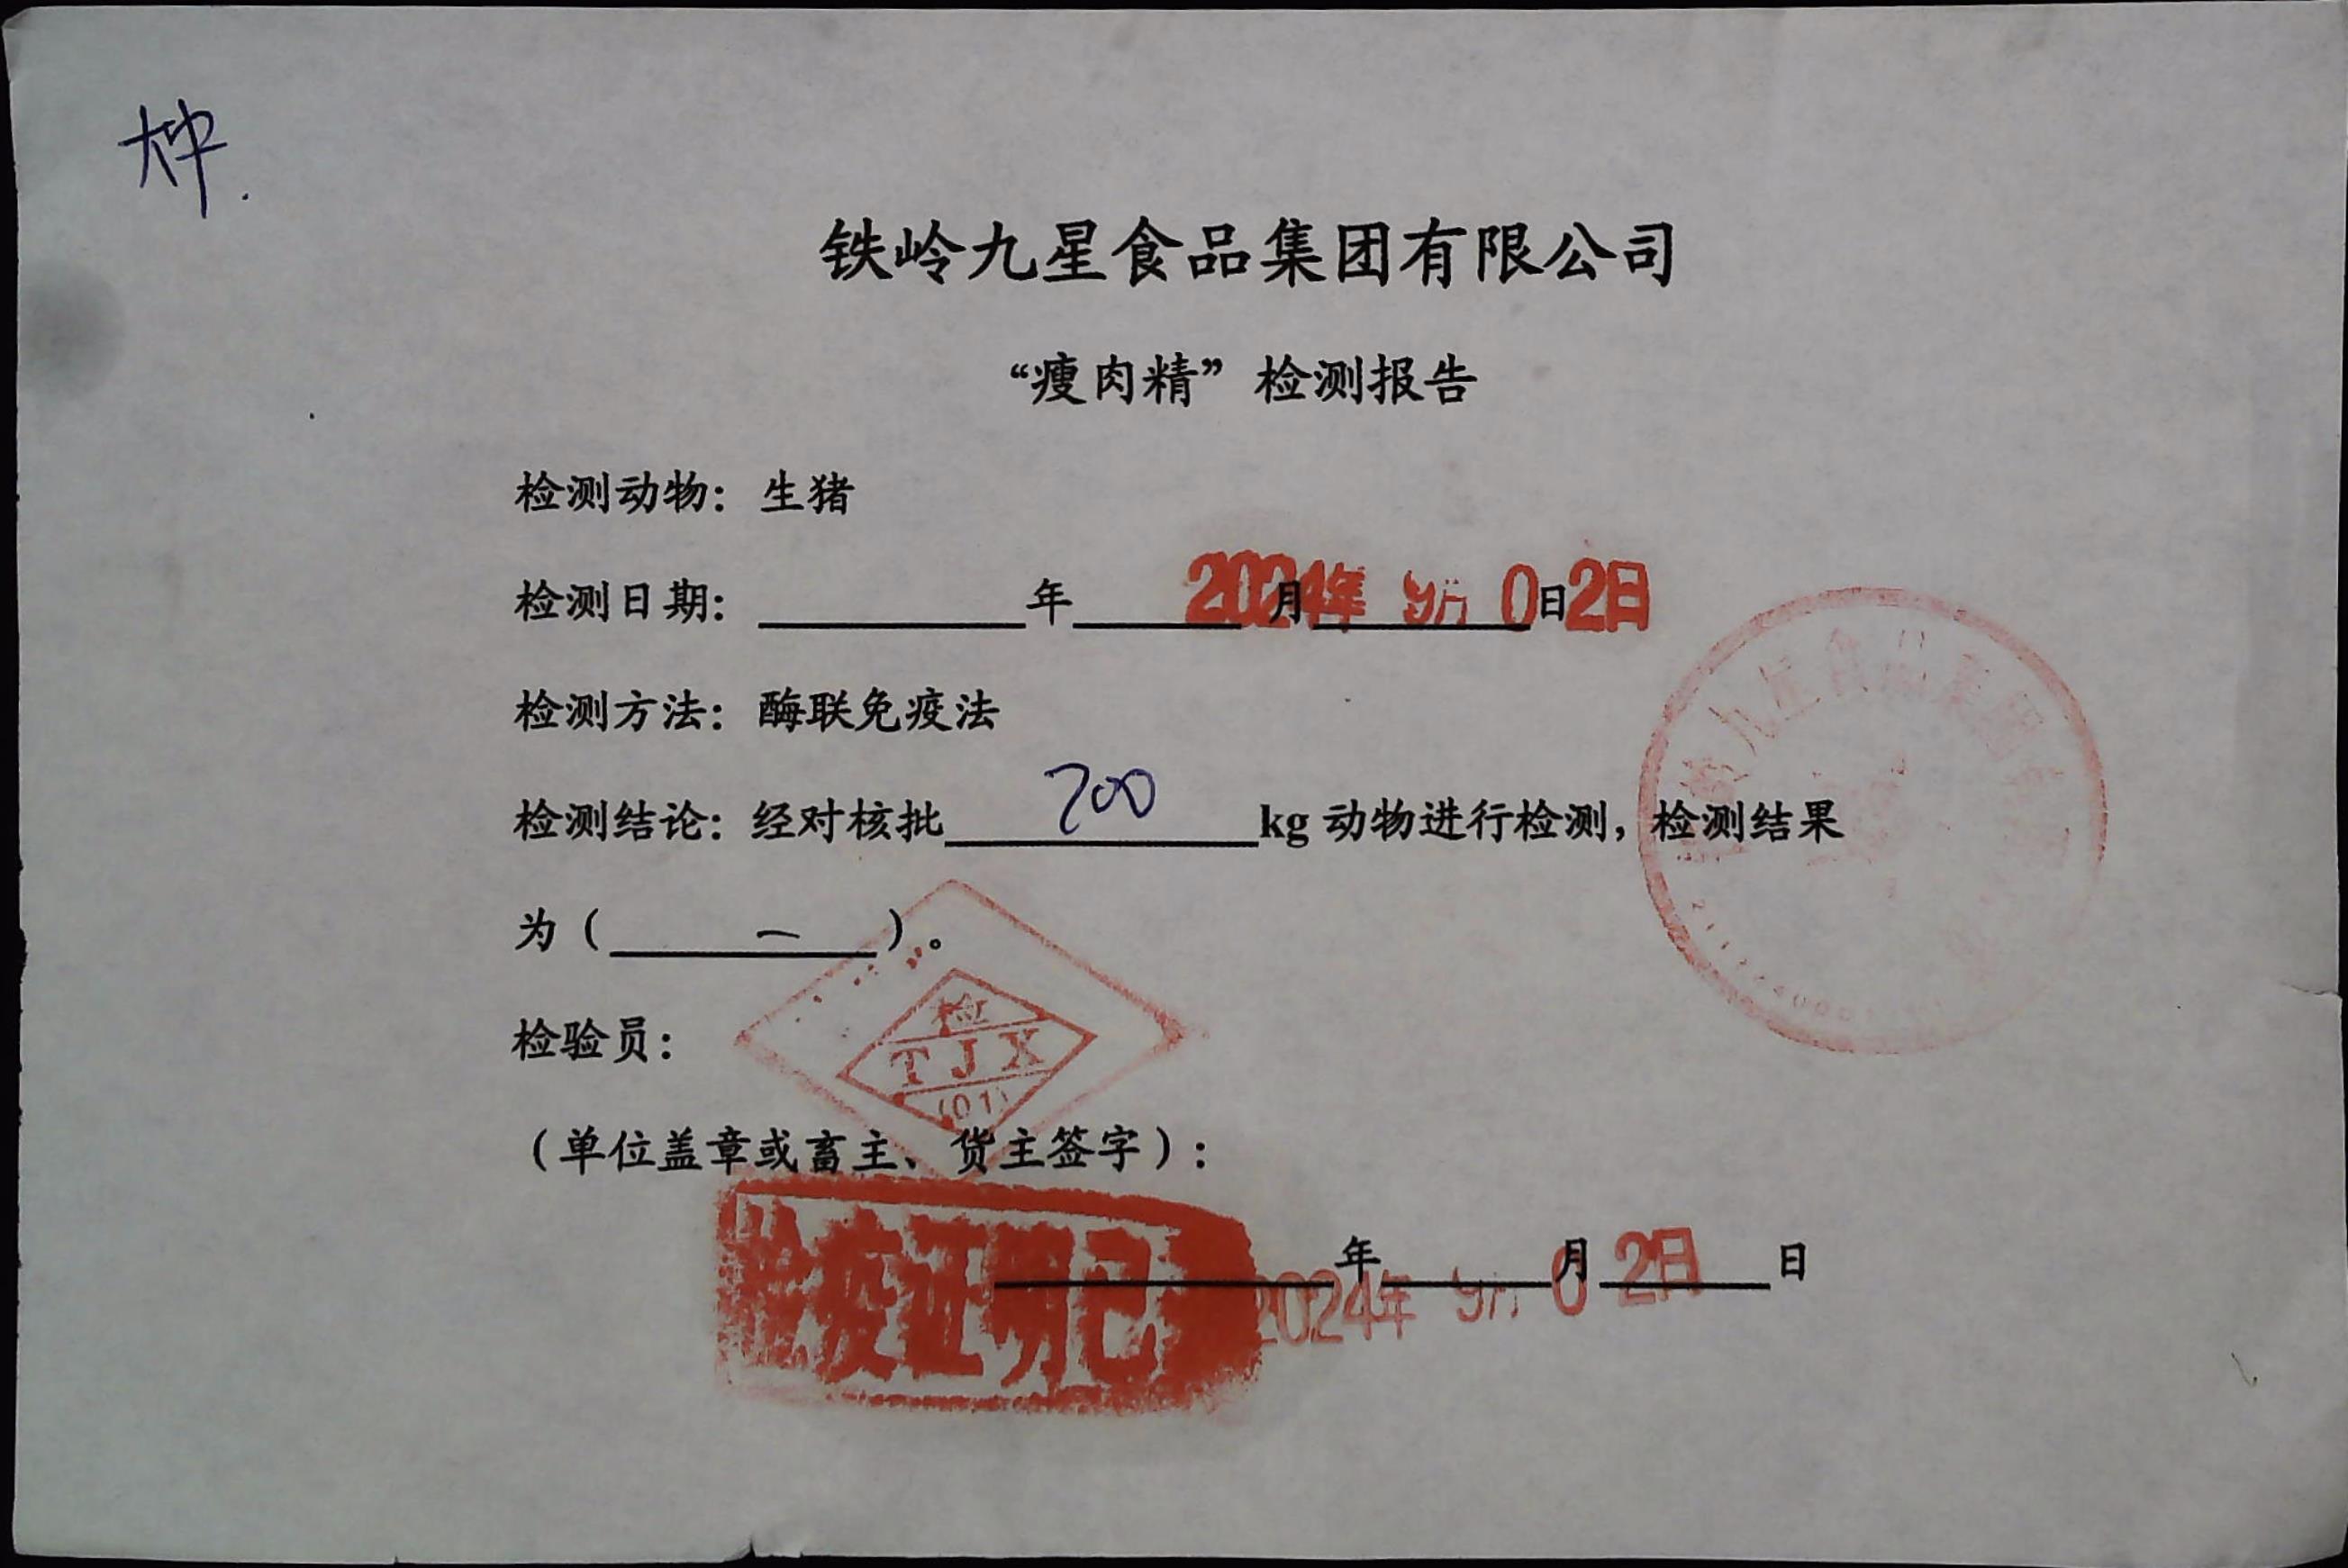 铁岭九星食品集团有限公司
“瘦肉精”检测报告
检测动物：生猪
检测日期：年月日
2024年 9月 02日
检测方法：酶联免疫法
检测结论：经对核批700kg动物进行检测，检测结果
为（一）。
检验员：
检
TJX
(01)
九星食品集团
（单位盖章或畜主、货主签字）：
检疫证明已
年月日
2024年 9月 02日